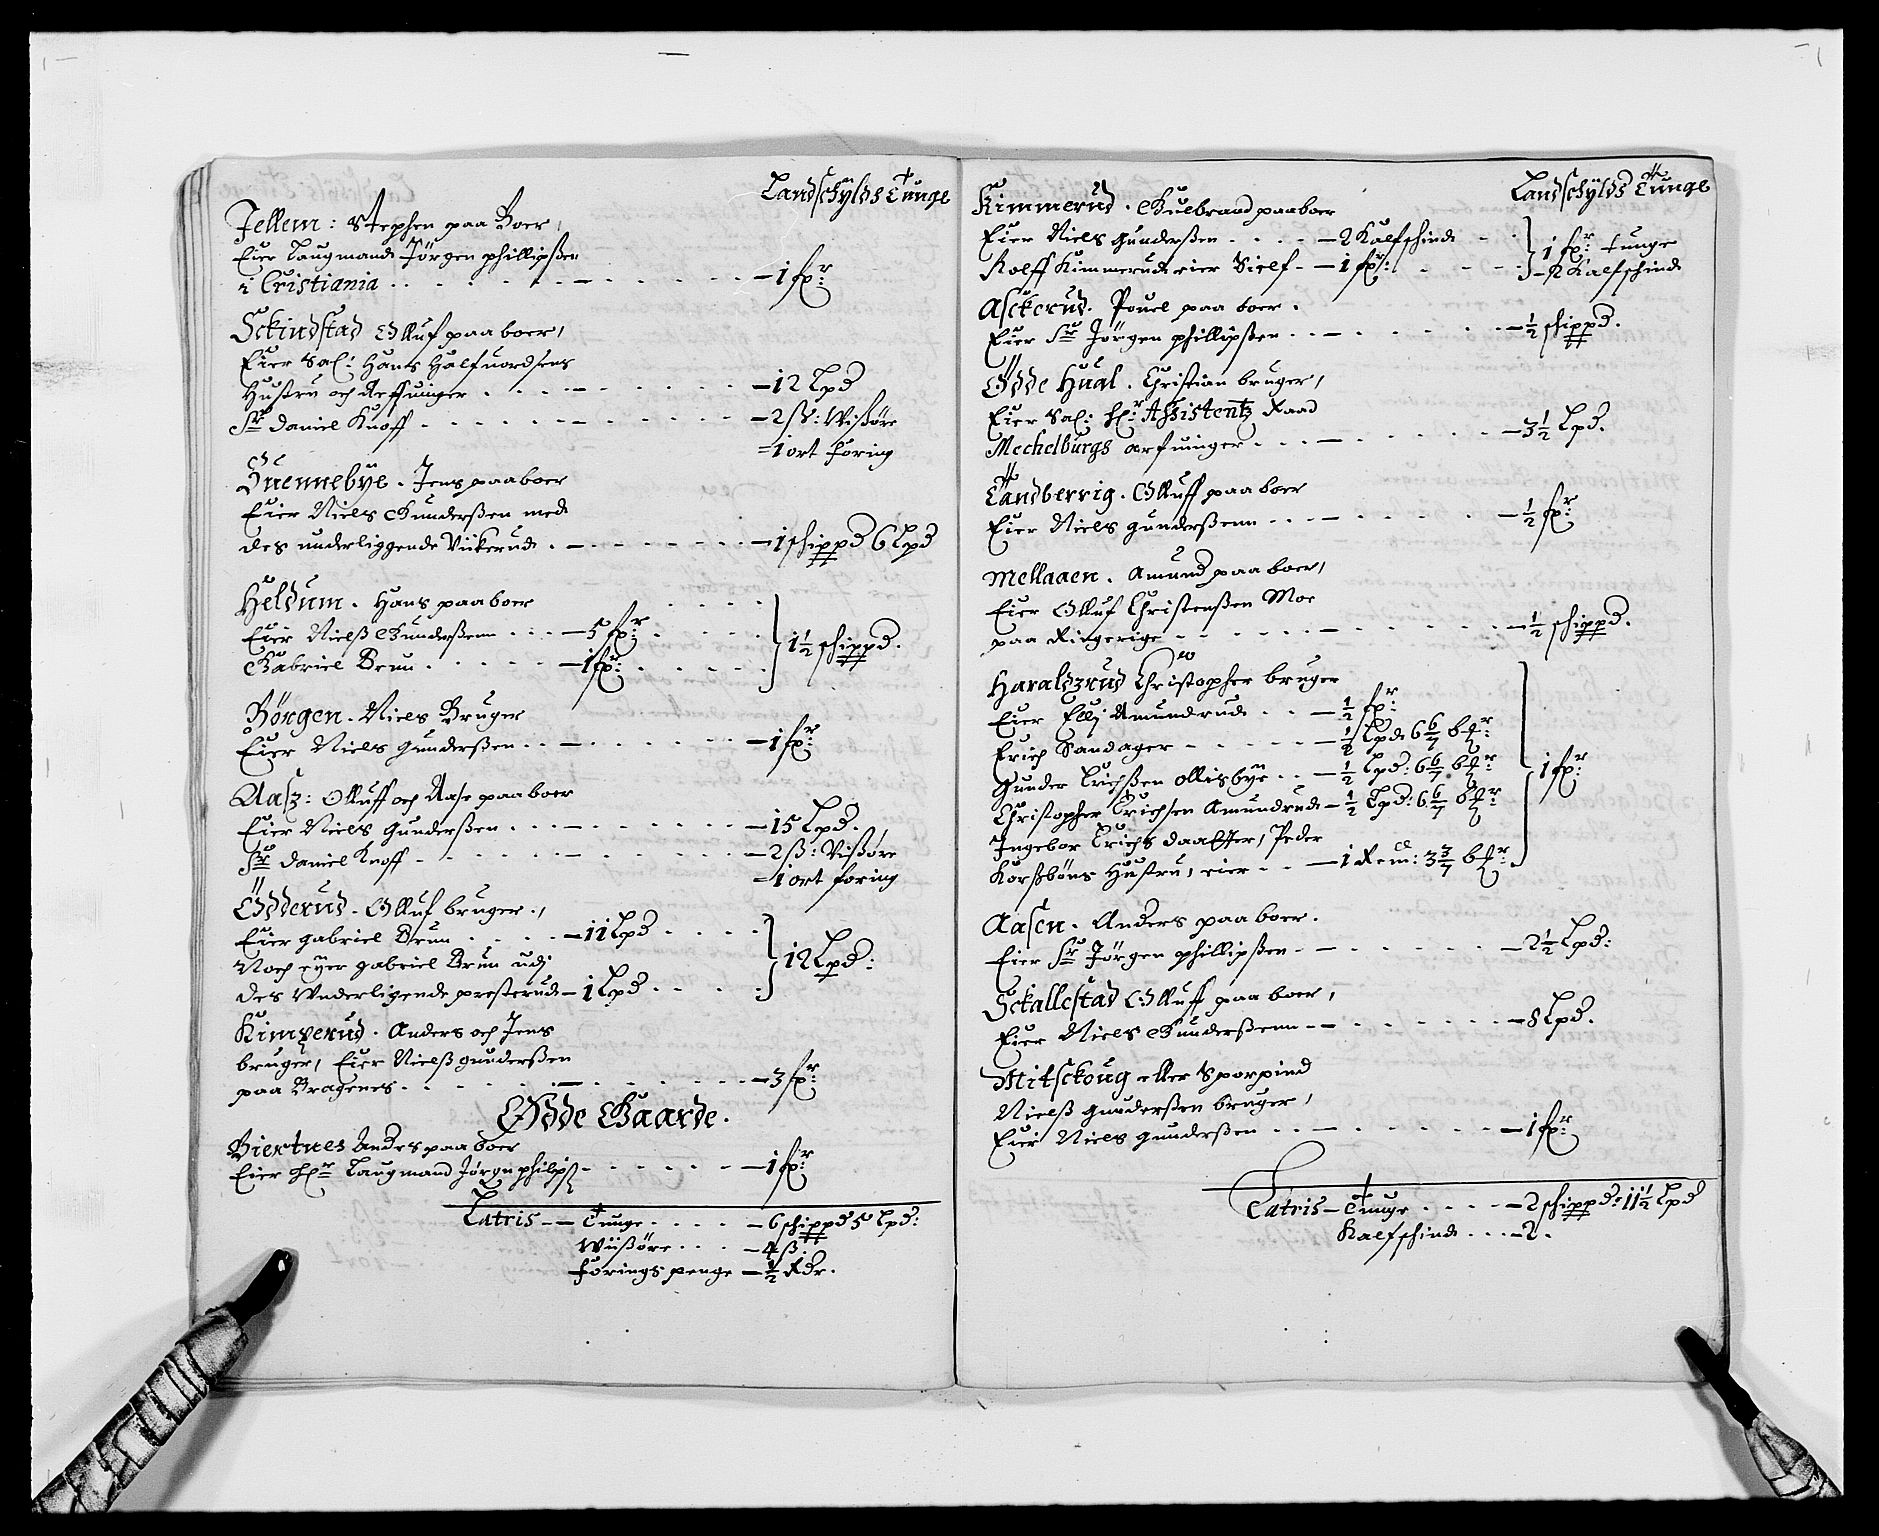 Landschÿlds Tunge
Jellem: Stephen paa Boer,
Eier Laugmand Jörgen phillipßen
i Cristiania . . . . . . . . . . — 1 fxr:
Sckindstad Olluf paa boer,
Eier Sal: Hans Halfuordsens
Hustru och Arffuinger . . . . — . . . . . — 12 Lpd
Sr Daniel Knoff . . . . . . — . . . . . — 2 ß: Wißöre
— 1 ort foring
Suennebÿe. Jens paaboer
Eier Niels Gunderßen med
des underliggende Vikerud . — . . . . . — 1 schippd 6 Lpd
Heldum. Hans paaboer . . . .
Eier Nielß Gunderßenn . . . — 5 fxr: . . . .
Gabriel Brun . . . . . . — 1 fxr: . . . . . } 1½ schippd.
Börgen. Niels Bruger
Eier Niels Gunderßen . . . — . . . . . . — 1 fxr:
Aasz: Olluff och Aase paaboer
Eier Niels Gunderßen . . . — . . . . . . — 15 Lpd.
Sr Daniel Knoff . . . . . . — . . . . . — 2 ß: Vißöre
— 1 ort foring
Ödderud. Olluf bruger.,
Eier gabriel Brun . . . . — 11 Lpd . . . .
Noch eÿer gabriel Brun udj
des Underligende presterud — 1 Lpd . . . . } 12 Lpd:
Kimperud. Anders och Jens
bruger, Eier Nielß gunderßen
paa Bragenes . . . . . . — . . . . . . — 3 fxr:
Ödde Gaarde.
Biertnes Andes paa boer
Eier Hr Laugmand Jörgn philipß . . . . . . — 1 fxr:
Latris — Tunge . . . . — 6 schippd 5 Lpd:
Wiißöre . . . — 4 ß.
forings penge — ½ Rdr.
Landschÿlds Tunge
Kimmerud. Gulbrand paaboer
Eier Niels gunderßen . . . . — 2 Kalfschind . . } 1 fxr: tunge
Rolff Kimmerud eier Sielf . — 1 fxr: . . . . . — 2 Kalfschind
Asckerud. Pouel paa boer.
Eier Sr Jörgen phillipßen . . . — . . . . . . — ½ schippd.
Ödde Hual. Christian bruger,
Eier Sal: Hr Assistentz Raad
Mechelburgs arfuinger . . . — . . . . . . — 3½ Lpd.
Tandberrig. Olluff paa boer
Eier Niels gunderßenn . . . — . . . . . . — ½ fxr:
Mellaaen. Amund paa boer,
Eier Olluf Christenßen Moe
paa Ringerige . . . . . . — . . . . . . — ½ schippd.
Haraldzrud Christopher bruger
Eier Ellj Amundrud . . — ½ fxr:
Erich Sandager . . . . . — ½ Lpd 6 6/7 bfr:
Gunder Erichßen ollisbÿe . . — ½ Lpd: 6 6/7 bfr: } 1 fxr:
Christopher Erichsen Amundrud — ½ Lpd: 6 6/7 bfr:
Ingebor Erichs daatter, Peder
Korßböns Hustru, eier . . — 1 Rem: 3 3/7 bfr:
Aasen. Anders paa boer.
Eier Sr Jörgen phillipßen . . — . . . . . . — 2½ Lpd:
Sckallestad Olluff paa boer,
Eier Niels Gunderßenn . — . . . . . . — 8 Lpd.
Mitsckoug eller Sporpind
Nielß gunderßen bruger,
Eier Niels gunderßen . . . — . . . . . . — 1 fxr:
Latris — Tunge . . . . — 2 schippd: 11½ Lpd
Kalfschind . . . — 2.